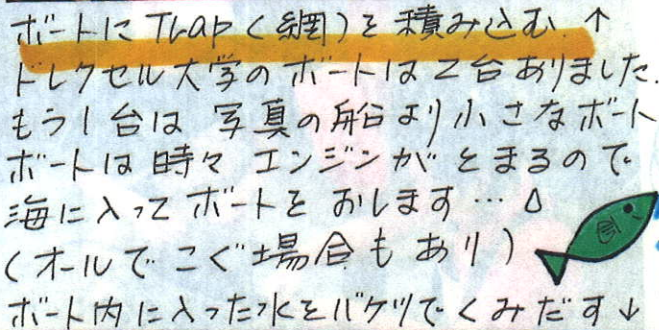 ボートに Trap (網) を 積み込む ↑
ドレクセル大学のボートは2台ありました.
もう1台は 写真の船より小さなボート
ボートは時々 エンジンが とまるので
海に入って ボートを おします… △
(オールで こぐ場合もあり)
ボート内に入った水をバケツで くみだす ↓